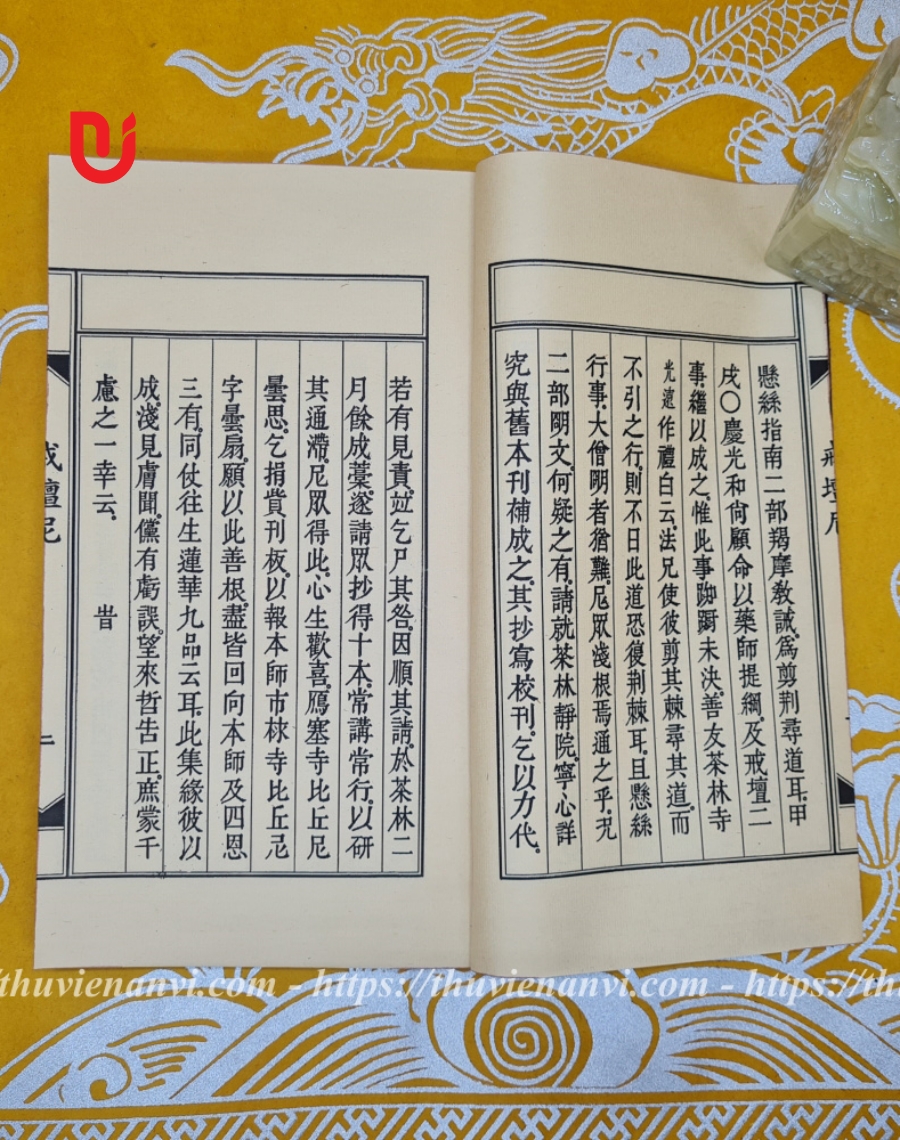 懸絲指南二部羯摩教誡為剪荆尋道耳甲
戌〇慶光和尚願命以藥師提綱及戒壇二
事繼以成之惟此事踟躕未決善友茶林寺
光遠作禮白云法兄使彼剪其棘尋其道而
不引之行則不日此道恐復荆棘耳且懸絲
行事大僧明者猶難尼眾淺根焉通之乎況
二部明文何疑之有請就茶林靜院寧心詳
究與舊本刊補成之其抄寫校刊乞以力代
若有見責竝乞尸其咎因順其請於茶林二
月餘成藁遂請眾抄得十本常講常行以研
其通滯尼眾得此心生歡喜鴈塞寺比丘尼
曇思乞捐貲刊板以報本師市椂寺比丘尼
字曇扇願以此善根盡皆回向本師及四恩
三有同仗往生蓮華九品云耳此集緣彼以
成淺見膚聞儻有虧誤望來哲告正庶蒙千
慮之一幸云 旹
戒壇尼
二
戒壇尼
https://thuvienanvi.com - https://thuvienanvi.com - https://th